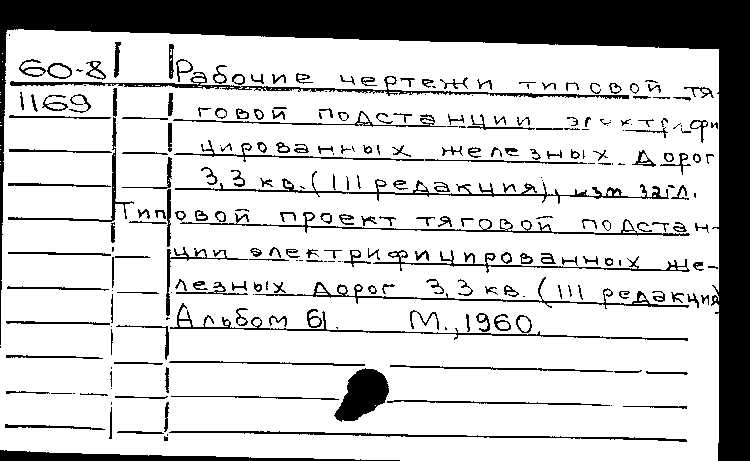 60-8 Рабочие чертежи типовой тя-
1169 говой подстанции электрифи
цированных железных дорог
3,3 кв. (III редакция), изм загл.
Типовой проект тяговой подстан-
ции электрифицированных же-
лезных дорог 3,3 кв. (III редакция)
Альбом Б1. М., 1960.